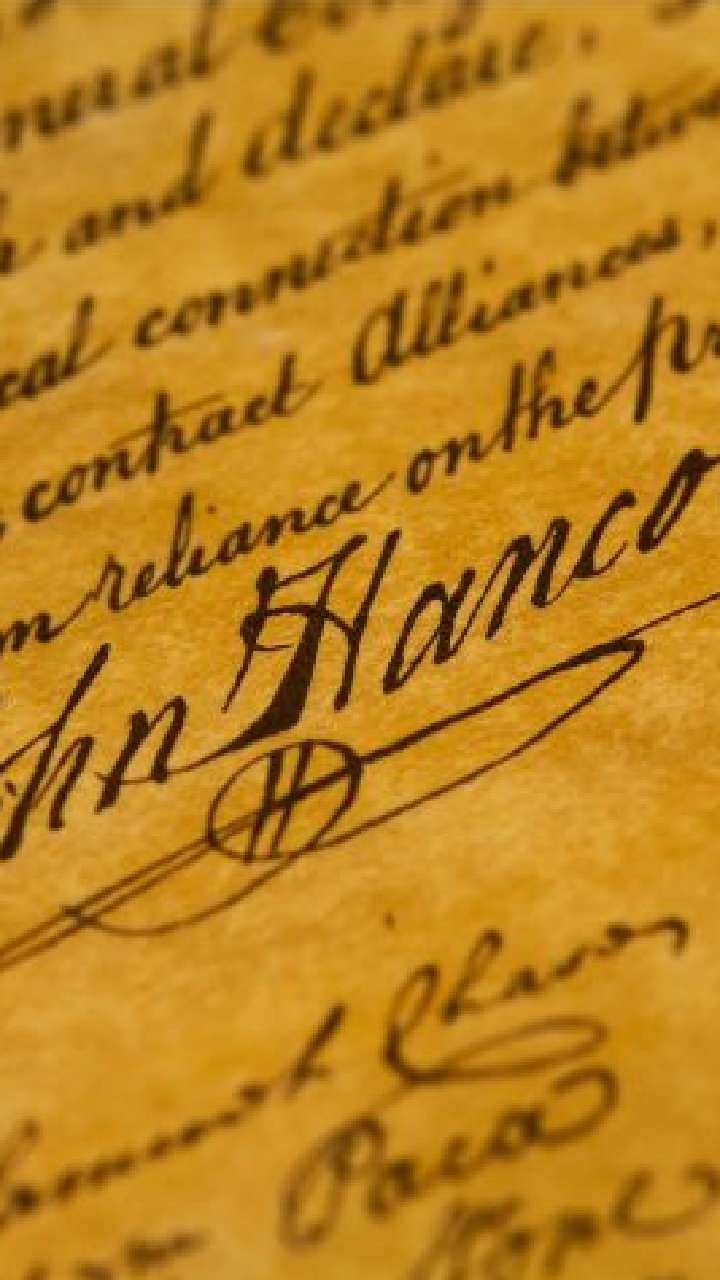 neral Cong
h and declare,
cal connection betwe
contract Alliances,
m reliance on the pr
hn Hanco
Samuel Chase
Paca